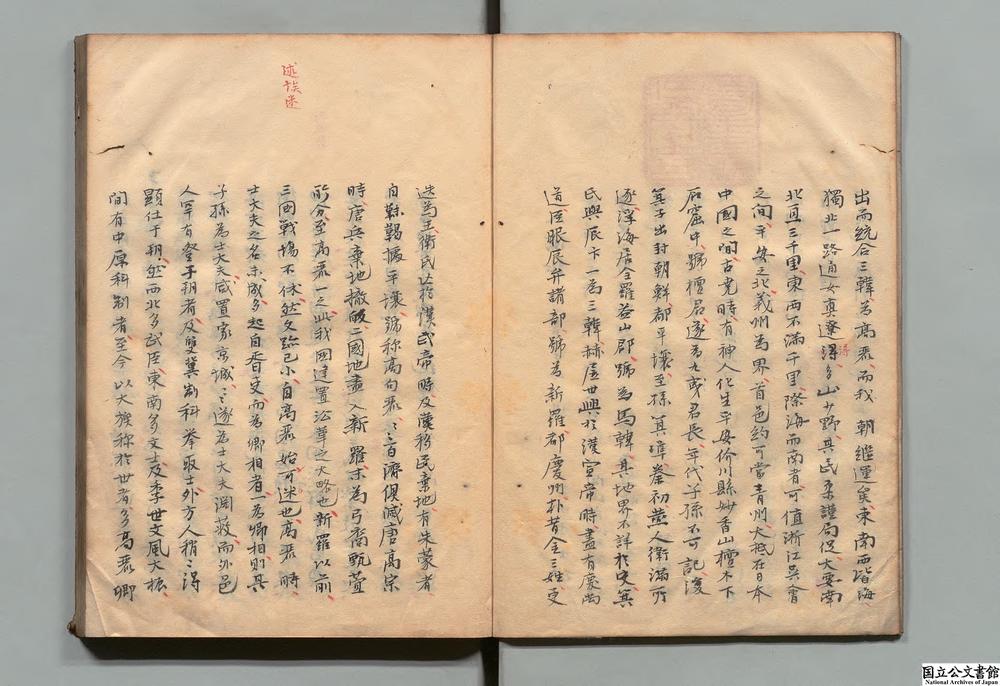 出而統合三韓爲高麗而我 朝繼運矣東南西皆海
獨北一路通女真遼瀋多山少野其民柔謹局促大要南
北亘三千里東西不滿千里際海而南者可值浙江吳會
之間平安之北義州爲界首邑約可當青州大抵在日本
中國之間古堯時有神人化生平安价川縣妙香山檀木下
石窟中號檀君遂爲九夷君長年代子孫不可記後
箕子出封朝鮮都平壤至孫箕準秦初燕人衛滿所
逐浮海居全羅益山郡號爲馬韓其地界不詳於史箕
氏與辰卞一爲三韓赫居世興於漢宣帝時盡有慶尚
道臣服辰弁諸部號爲新羅都慶州朴昔金三姓更
述誤迷
迭爲王衛氏亡於漢武帝時及漢移民棄地有朱蒙者
自靺鞨據平壤號称高句麗〻〻百濟俱滅唐高宗
時唐兵棄地撤敀二國地盡入新羅末爲弓裔甄萱
所分至高麗一之此我國建置沿革之大略也新羅以前
三國戰場不休然文跡已小自高麗始可迷也高麗時
士大夫之名未成多起自胥吏而爲卿相者一爲卿相則其
子孫爲士大夫咸置家京城〻〻遂爲士大夫淵藪而外邑
人罕有登于朝者及雙冀制科举取士外方人稍〻得
顯仕于朝然西北多武臣東南多文士及季世文風大振
間有中原科制者至今以大族称於世者多高麗卿
国立公文書館
National Archives of Japan